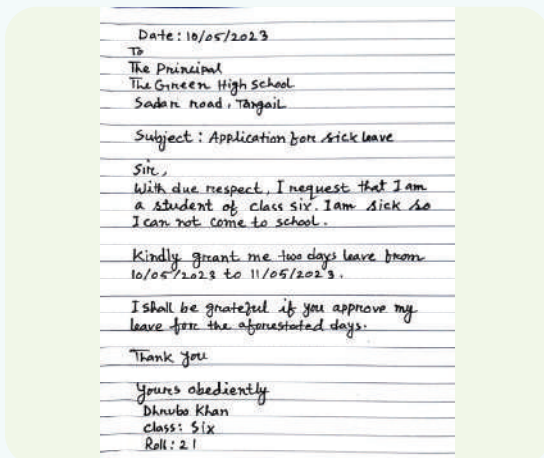 Date: 10/05/2023
To
The Principal
The Green High School
Sadar road, Tangail
Subject : Application for sick leave
Sir,
With due respect, I request that I am
a student of class six. I am sick so
I can not come to school.
Kindly grant me two days leave from
10/05/2023 to 11/05/2023.
I shall be grateful if you approve my
leave for the aforestated days.
Thank you
Yours obediently
Dhrubo Khan
class: Six
Roll: 21